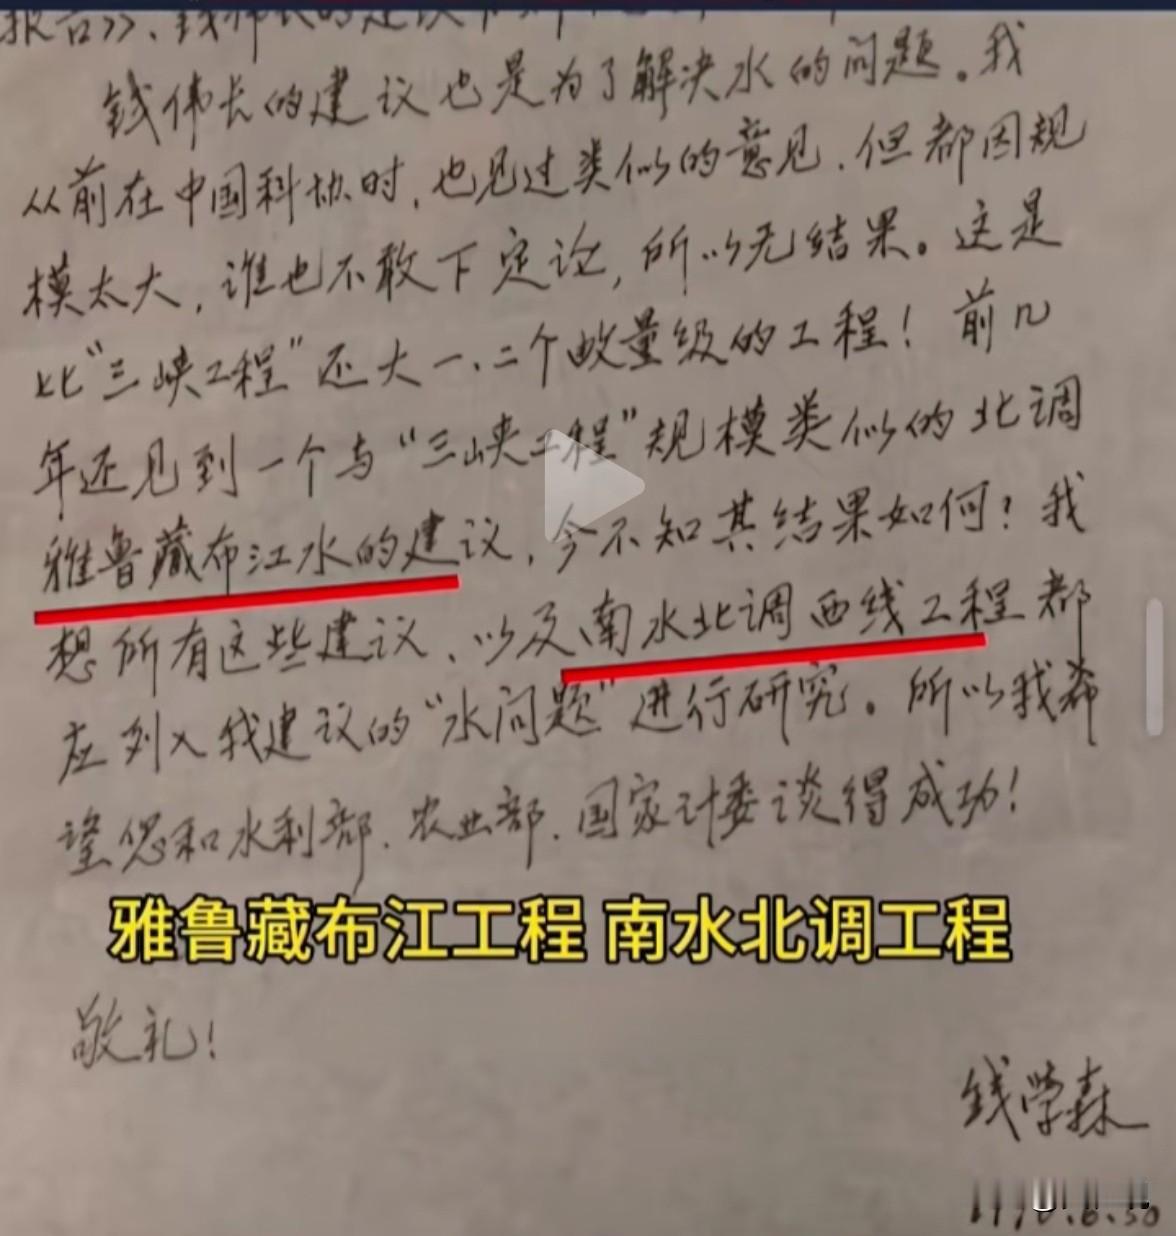 报告》、钱伟长的建议
钱伟长的建议也是为了解决水的问题。我
从前在中国科协时，也见过类似的意见，但都因规
模太大，谁也不敢下定论，所以无结果。这是
比“三峡工程”还大一、二个数量级的工程！前几
年还见到一个与“三峡工程”规模类似的北调
雅鲁藏布江水的建议，今不知其结果如何？我
想所有这些建议、以及南水北调西线工程都
应列入我建议的“水问题”进行研究。所以我希
望您和水利部、农业部、国家计委谈得成功！
雅鲁藏布江工程 南水北调工程
敬礼！
钱学森